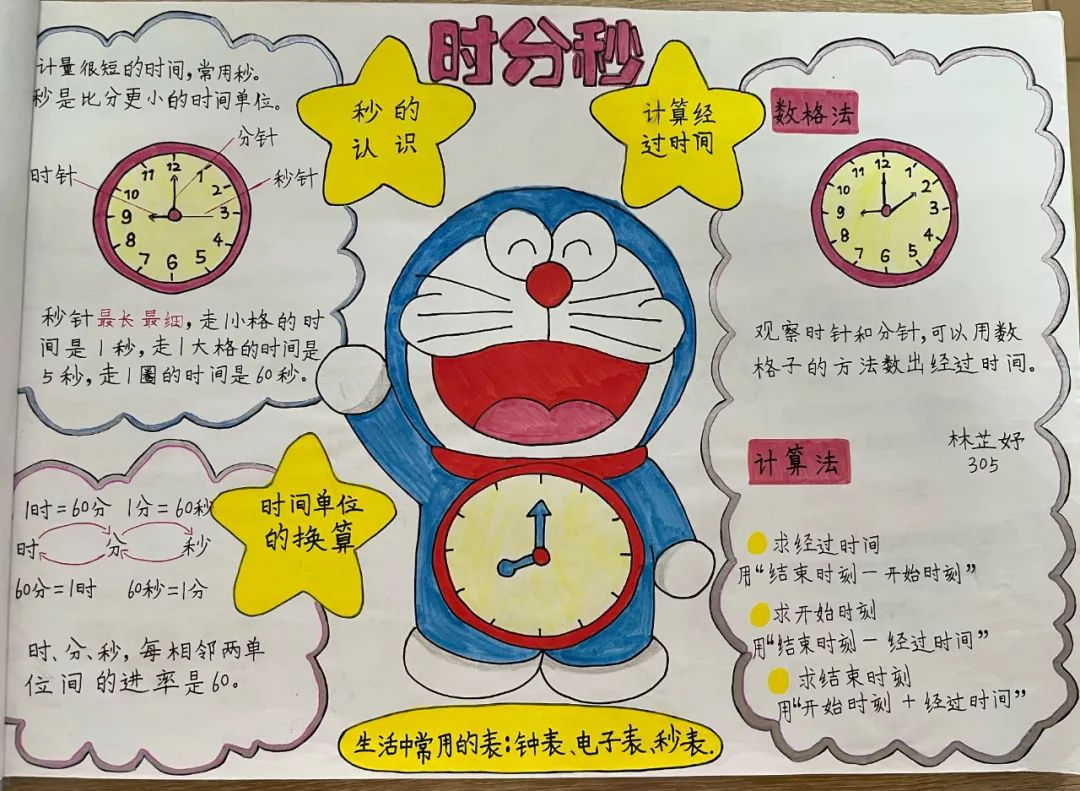 时分秒
计量很短的时间,常用秒。
秒是比分更小的时间单位。
秒的
认识
分针
时针
秒针
12
1
2
3
4
5
6
7
8
9
10
11
秒针最长最细,走1小格的时
间是1秒,走1大格的时间是
5秒,走1圈的时间是60秒。
时间单位
的换算
1时=60分 1分=60秒
时 分 秒
60分=1时 60秒=1分
时、分、秒,每相邻两单
位间的进率是60。
计算经
过时间
数格法
12
1
2
3
4
5
6
7
8
9
10
11
观察时针和分针,可以用数
格子的方法数出经过时间。
林芷妤
305
计算法
求经过时间
用“结束时刻-开始时刻”
求开始时刻
用“结束时刻-经过时间”
求结束时刻
用“开始时刻+经过时间”
生活中常用的表:钟表、电子表、秒表.